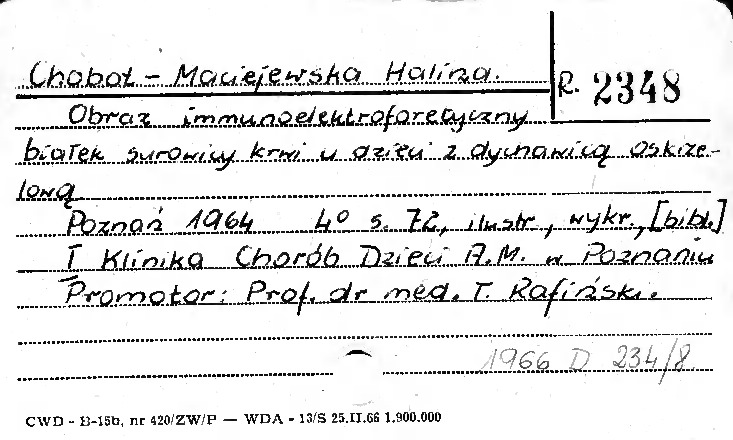 Chobot - Maciejewska Halina.
R. 2348
Obraz immunoelektroforetyczny
białek surowicy krwi u dzieci z dychawicą oskrze-
lową
Poznań 1964 4° s. 72, ilustr., wykr., [bibl.]
I Klinika Chorób Dzieci A.M. w Poznaniu
Promotor: Prof. dr med. T. Rafiński.
1966 D 234/8
CWD - B-15b, nr 420/ZW/P — WDA - 13/S 25.II.66 1.900.000